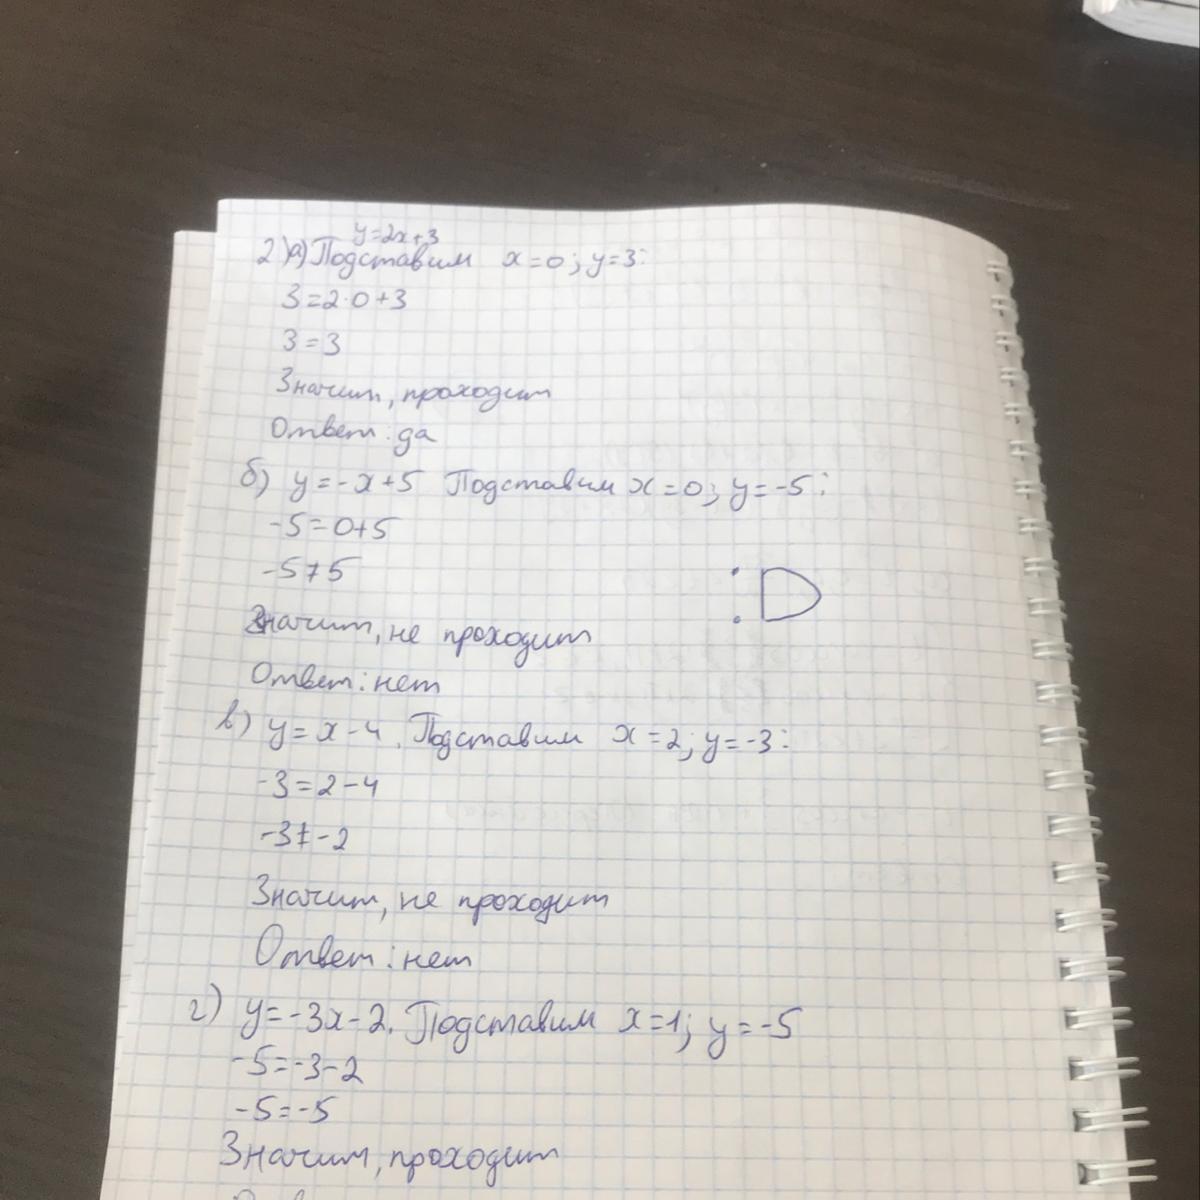 y=2x+3
2)а)Подставим x=0; y=3:
3=2·0+3
3=3
Значит, проходит
Ответ: да
б) y=-x+5 Подставим x=0; y=-5:
-5=0+5
-5≠5
Значит, не проходит
Ответ: нет
в) y=x-4. Подставим x=2; y=-3:
-3=2-4
-3≠-2
Значит, не проходит
Ответ: нет
г) y=-3x-2. Подставим x=1; y=-5
-5=-3-2
-5=-5
Значит, проходит